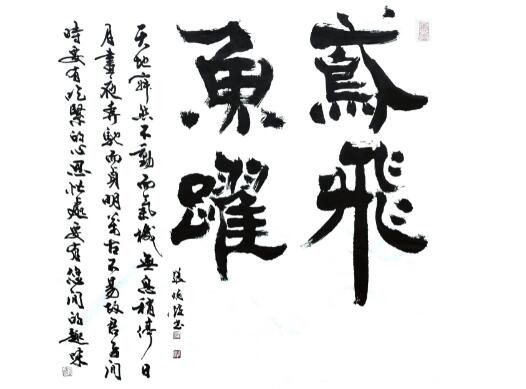 鳶飛
魚躍
天地寂然不動而氣機無息稍停日
月晝夜奔馳而貞明萬古不易故君子閒
時要有吃緊的心思忙處要有悠閒的趣味
張
書